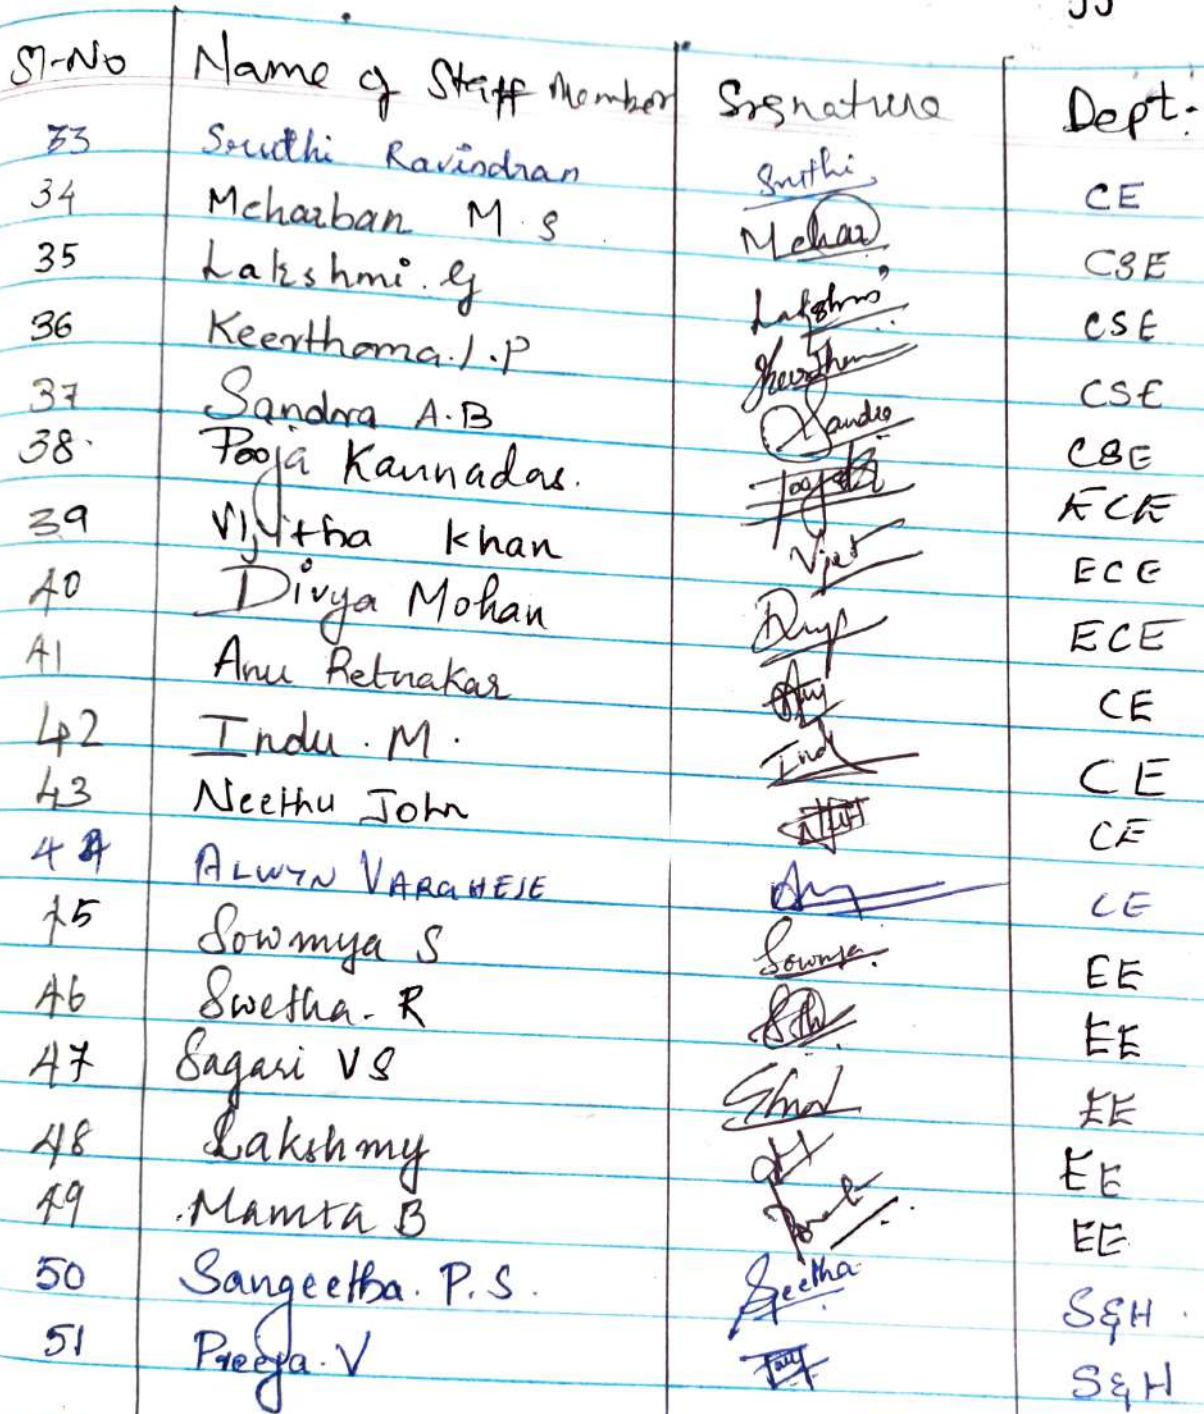 Sl-No Name of Staff Member Signature Dept:
33 Sruthi Ravindran Sruthi CE
34 Meharban M.S Mehar CSE
35 Lakshmi.G Lakshmi CSE
36 Keerthana.J.P CSE
37 Sandra A.B Sandra CSE
38. Pooja Kannadas. ECE
39 Vijitha Khan ECE
40 Divya Mohan ECE
41 Anu Retnakar CE
42 Indu.M. Ind CE
43 Neethu John CE
44 ALWYN VARGHESE CE
45 Sowmya S Sowmya. EE
46 Swetha.R EE
47 Sagari VS EE
48 Lakshmy EE
49 Mamta B EE
50 Sangeetha.P.S. Geetha S&H
51 Preeja.V S&H